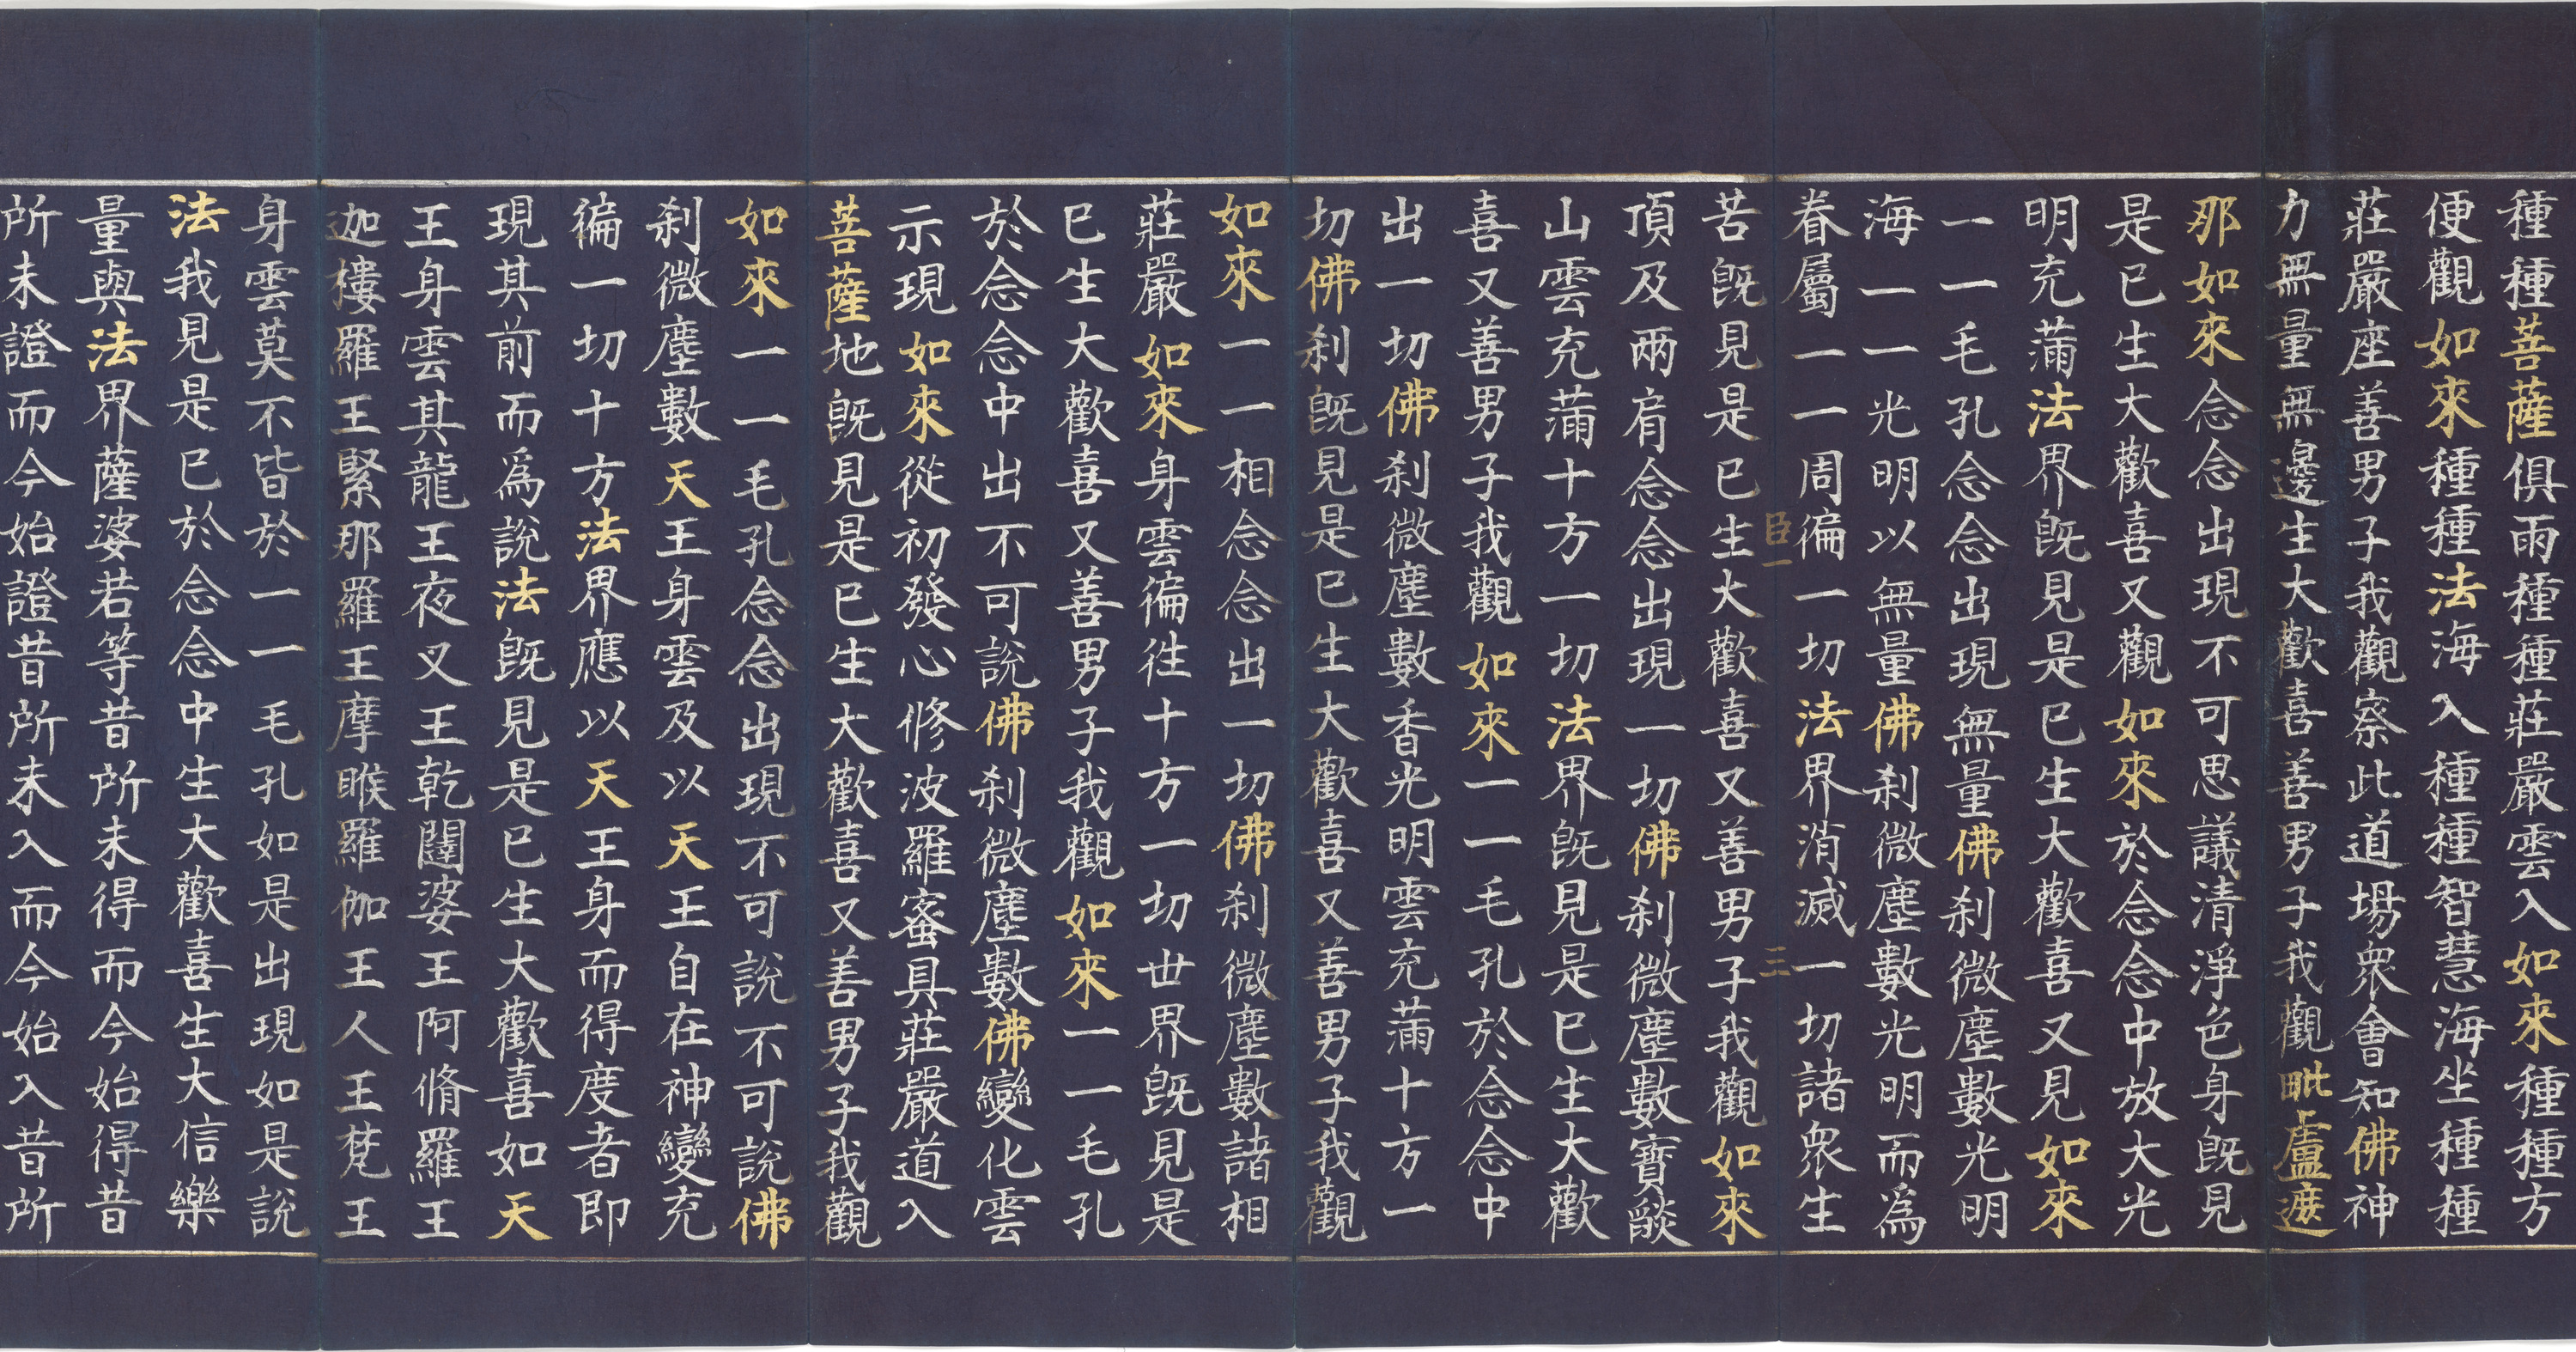 種種菩薩俱雨種種莊嚴雲入如來種種方
便觀如來種種法海入種種智慧海坐種種
莊嚴座善男子我觀察此道場衆會知佛神
力無量無邊生大歡喜善男子我觀毗盧遮
那如來念念出現不可思議清淨色身旣見
是已生大歡喜又觀如來於念念中放大光
明充滿法界旣見是已生大歡喜又見如來
一一毛孔念念出現無量佛刹微塵數光明
海一一光明以無量佛刹微塵數光明而爲
眷屬一一周徧一切法界消滅一切諸衆生
臣一 三
苦旣見是已生大歡喜又善男子我觀如來
頂及兩肩念念出現一切佛刹微塵數寶燄
山雲充滿十方一切法界旣見是已生大歡
喜又善男子我觀如來一一毛孔於念念中
出一切佛刹微塵數香光明雲充滿十方一
切佛刹旣見是已生大歡喜又善男子我觀
如來一一相念念出一切佛刹微塵數諸相
莊嚴如來身雲徧往十方一切世界旣見是
已生大歡喜又善男子我觀如來一一毛孔
於念念中出不可說佛刹微塵數佛變化雲
示現如來從初發心修波羅蜜具莊嚴道入
菩薩地旣見是已生大歡喜又善男子我觀
如來一一毛孔念念出現不可說不可說佛
刹微塵數天王身雲及以天王自在神變充
徧一切十方法界應以天王身而得度者即
現其前而爲說法旣見是已生大歡喜如天
王身雲其龍王夜叉王乾闥婆王阿脩羅王
迦樓羅王緊那羅王摩睺羅伽王人王梵王
身雲莫不皆於一一毛孔如是出現如是說
法我見是已於念念中生大歡喜生大信樂
量與法界薩婆若等昔所未得而今始得昔
所未證而今始證昔所未入而今始入昔所